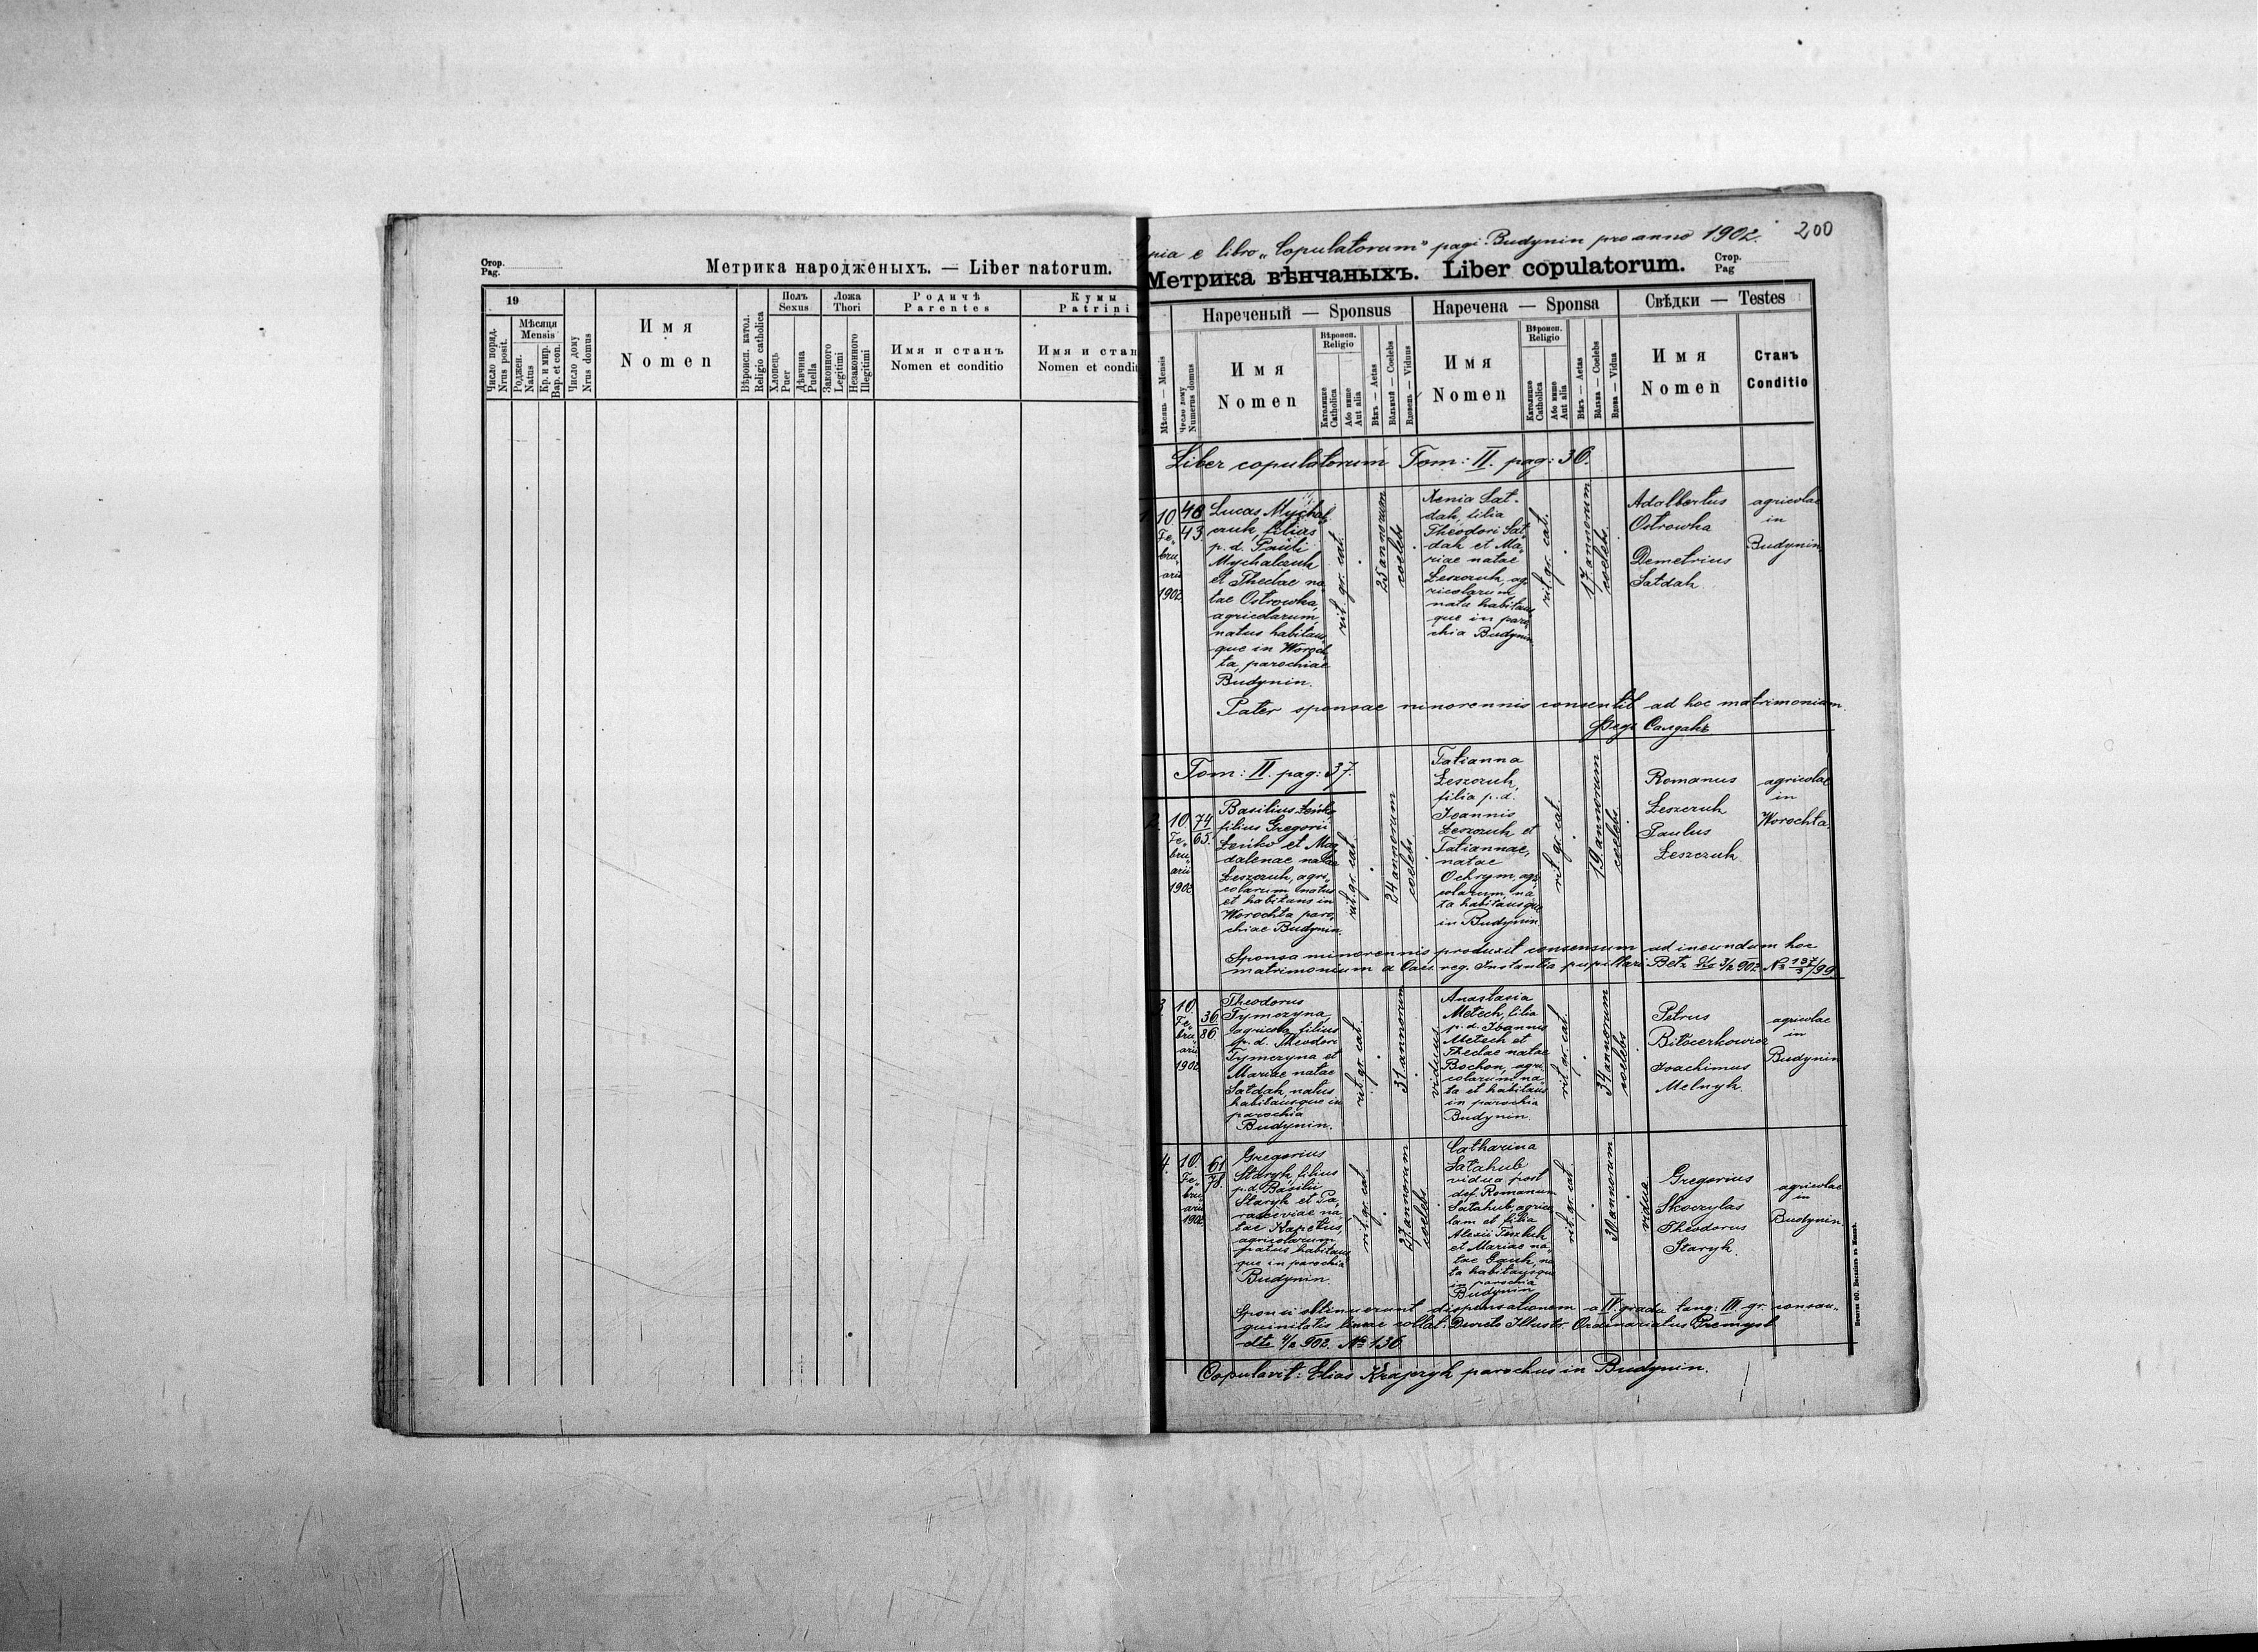 Стор.
Pag.
Метрика народженыхъ. — Liber natorum.
19
Число поряд.
Nrus posit.
Мѣсяця
Mensis
Роджен.
Natus
Кр. и мир.
Bap. et con.
Число дому
Nrus domus
Имя
Nomen
Вѣроисп. катол.
Religio catholica
Полъ
Sexus
Хлопець
Puer
Дѣвчина
Puella
Ложа
Thori
Законного
Legitimi
Незаконного
Illegitimi
Родичѣ
Parentes
Имя и станъ
Nomen et conditio
Кумы
Patrini
Имя и стан
Nomen et condit
pia e libro „Copulatorum" pagi Budynin pro anno 1902.
200
Метрика вѣнчаныхъ. Liber copulatorum.
Стор.
Pag
Мѣсяць — Mensis
Число дому
Numerus domus
Нареченый — Sponsus
Имя
Nomen
Вѣроисп.
Religio
Католицке
Catholica
Або инше
Aut alia
Вѣкъ — Aetas
Вôльный — Coelebs
Вдовець — Viduus
Наречена — Sponsa
Имя
Nomen
Вѣроисп.
Religio
Католицке
Catholica
Або инше
Aut alia
Вѣкъ — Aetas
Вôльна — Coelebs
Вдова — Vidua
Свѣдки — Testes
Имя
Nomen
Станъ
Conditio
Liber copulatorum Tom: II. pag: 36.
10
Fe„
bru„
arii
1902
48
43
Lucas Mychal„
czuk, filius
p. d. Pauli
Mychalczuk
et Theclae na„
tae Ostrowka,
agricolarum,
natus habitans„
que in Woroch„
ta, parochiae
Budynin.
rit. gr. cat.
25 annorum
coelebs
Xenia Sał„
dak, filia
Theodori Sał„
dak et Ma„
riae natae
Łeszczuk, ag„
ricolarum
nata habitans„
que in paro„
chia Budynin
rit. gr. cat.
17 annorum
coelebs
Adalbertus
Ostrowka
Demetrius
Sałdak
agricolae
in
Budynin
Pater sponsae minorennis consentit ad hoc matrimonium.
Федь Салдакъ
Tom: II. pag: 37.
2.
10
Fe„
bru„
arii
1902
74
65.
Basilius Łeńko
filius Gregorii
Łeńko et Mag„
dalenae natae
Łeszczuk, agri„
colarum natus
et habitans in
Worochta paro„
chiae Budynin.
rit. gr. cat.
24 annorum
coelebs
Tatianna
Łeszczuk,
filia p. d.
Joannis
Łeszczuk et
Tatiannae,
natae
Ochrym, agri
colarum, na„
ta habitansque
in Budynin
rit. gr. cat.
19 annorum
coelebs.
Romanus
Łeszczuk
Paulus
Łeszczuk
agricolae
in
Worochta.
Sponsa minorennis produxit consensum ad ineundum hoc
matrimonium a Caes. reg. Instantia pupillari Bełz dto 3/2 902 № 137/3/99
3.
10.
Fe„
bru„
arii
1902
36.
86
Theodorus
Tymczyna,
agricola, filius
p. d. Theodori
Tymczyna et
Mariae natae
Sałdak, natus
habitansque in
parochia
Budynin.
rit. gr. cat.
31 annorum
viduus
Anastasia
Metech, filia
p. d. Joannis
Metech et
Theclae natae
Bochon, agri„
colarum, na„
ta et habitans
in parochia
Budynin.
rit. gr. cat.
34 annorum
coelebs
Petrus
Biłocerkowicz
Joachimus
Melnyk
agricolae
in
Budynin
4.
10.
Fe„
bru„
arii
1902
61
78.
Gregorius
Staryk, filius
p. d. Basilii
Staryk et Pa„
rasceviae na„
tae Kapelus,
agricolarum
natus habitans„
que in parochia
Budynin.
rit. gr. cat.
27 annorum
coelebs
Catharina
Sałahub
vidua post
def. Romanum
Sałahub, agrico„
lam et filia
Alexii
et Mariae na„
tae Hauk, na„
ta habitansque
in parochia
Budynin
rit. gr. cat.
30 annorum
vidua
Gregorius
Skoczylas
Theodorus
Staryk.
agricolae
in
Budynin
Sponsi obtinuerunt dispensationem a IV gradu tang: III gr. consan„
guinitatis lineae collat. Decreto Illustr. Ordinariatus Premysl
dto 4/2 902. № 136
Copulavit: Elias Krajczyk parochus in Budynin.